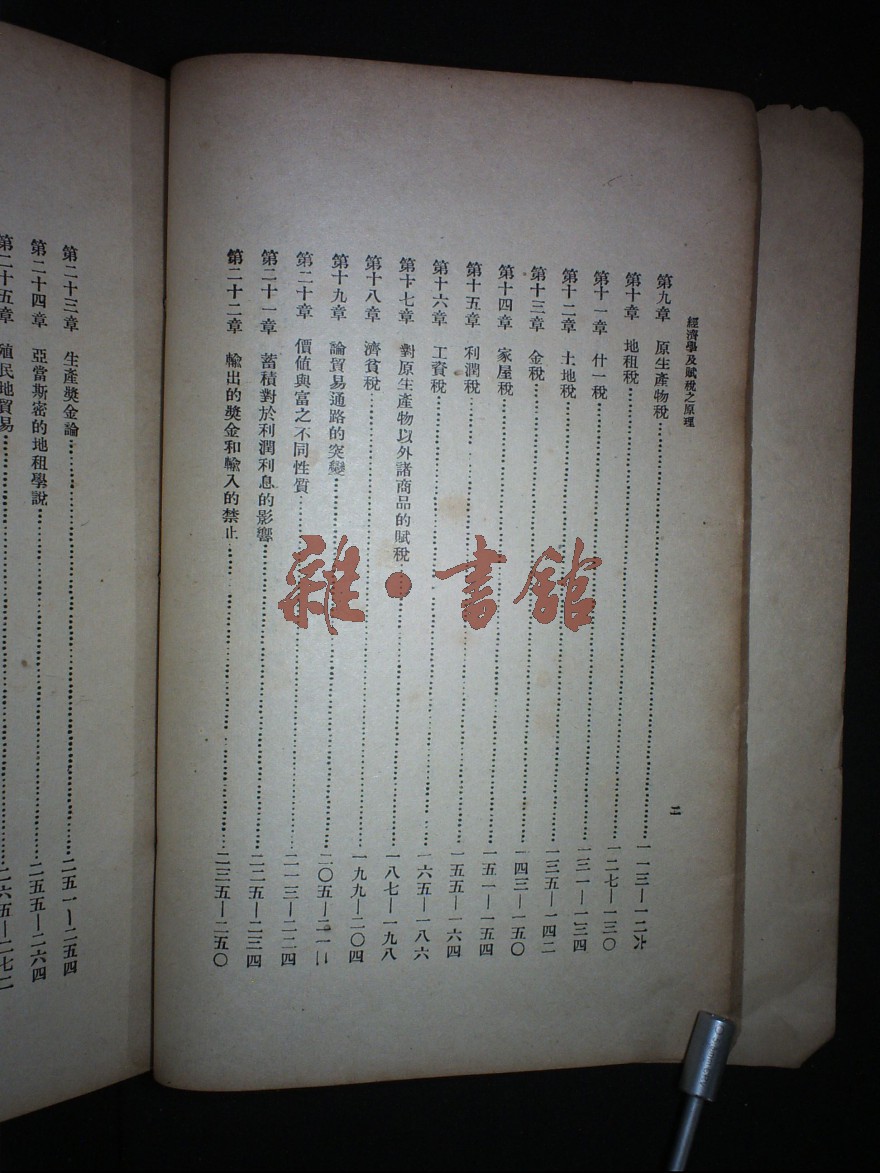 經濟學及賦稅之原理
二
第九章 原生產物稅 一一三—一二六
第十章 地租稅 一二七—一三〇
第十一章 什一稅 一三一—一三四
第十二章 土地稅 一三五—一四二
第十三章 金稅 一四三—一五〇
第十四章 家屋稅 一五一—一五四
第十五章 利潤稅 一五五—一六四
第十六章 工資稅 一六五—一八六
第十七章 對原生產物以外諸商品的賦稅 一八七—一九八
第十八章 濟貧稅 一九九—二〇四
第十九章 論貿易通路的突變 二〇五—二一二
第二十章 價值與富之不同性質 二一三—二二四
第二十一章 蓄積對於利潤利息的影響 二二五—二三四
第二十二章 輸出的獎金和輸入的禁止 二三五—二五〇
第二十三章 生產獎金論 二五一—二五四
第二十四章 亞當斯密的地租學說 二五五—二六四
第二十五章 殖民地貿易 二六五—二七二
雜·書館